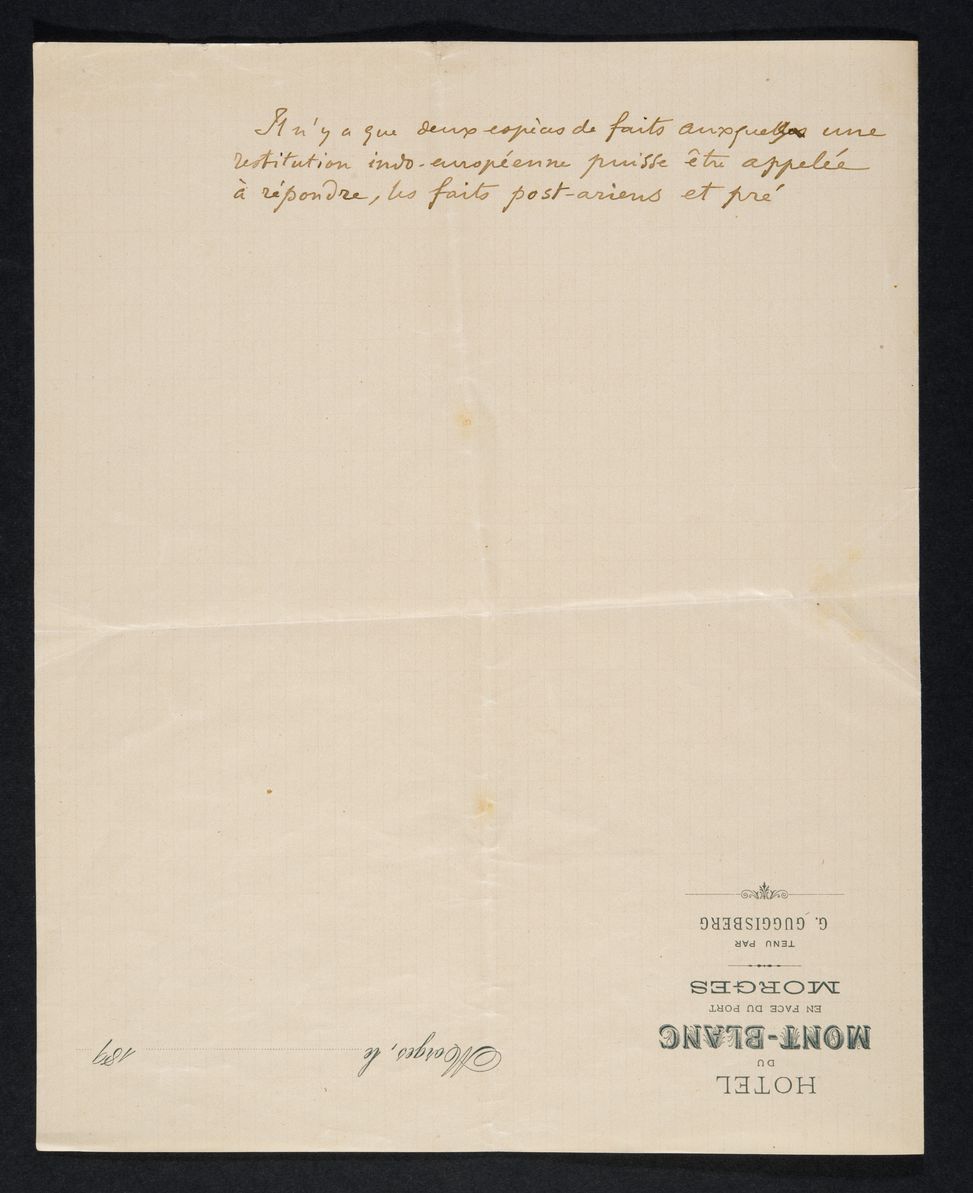 Il n'y a que deux espèces de faits auxquelles une
restitution indo-européenne puisse être appelée
à répondre, les faits post-ariens et pré
HOTEL
DU
MONT-BLANC
EN FACE DU PORT
MORGES
TENU PAR
G. GUGGISBERG
Morges, le 189